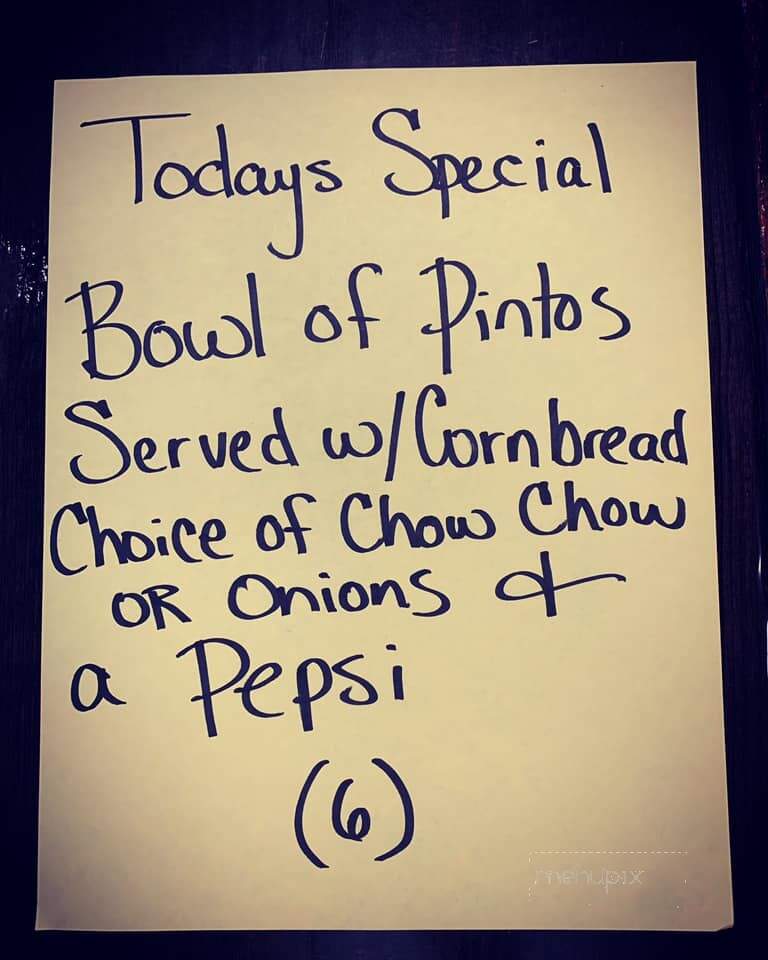 Todays Special
Bowl of Pintos
Served w/Cornbread
Choice of Chow Chow
OR Onions &
a Pepsi
(6)
menupix